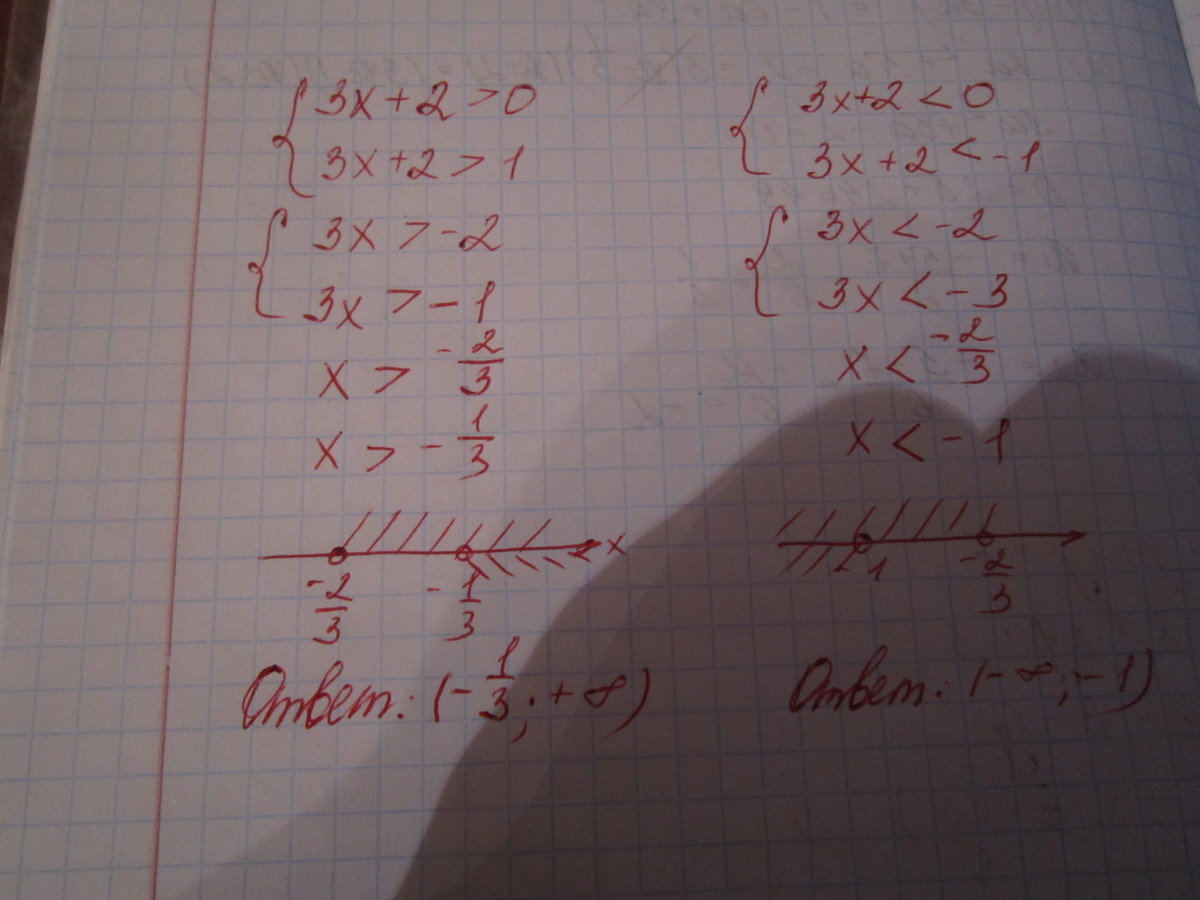 3x + 2 > 0
3x + 2 > 1
3x > -2
3x > - 1
x > -2/3
x > - 1/3
-2/3 - 1/3 x
Ответ: (- 1/3; + ∞)
3x+2 < 0
3x + 2 < -1
3x < -2
3x < - 3
x < -2/3
x < - 1
-1 -2/3
Ответ: (- ∞; - 1)